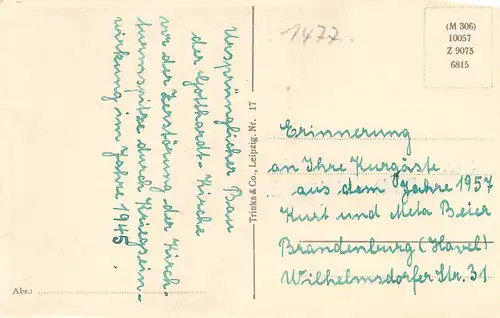 Ursprünglicher Bau
der Gotthardt-Kirche
vor der Zerstörung der Kirch-
turmspitze durch Kriegsein-
wirkung im Jahre 1945.
Abs.:
Trinks & Co., Leipzig, Nr. 17
1477.
(M 306)
10057
Z 9075
6815
Erinnerung
an Ihre Kurgäste
aus dem Jahre 1957
Kurt und Meta Beier
Brandenburg (Havel)
Wilhelmsdorfer Str. 31